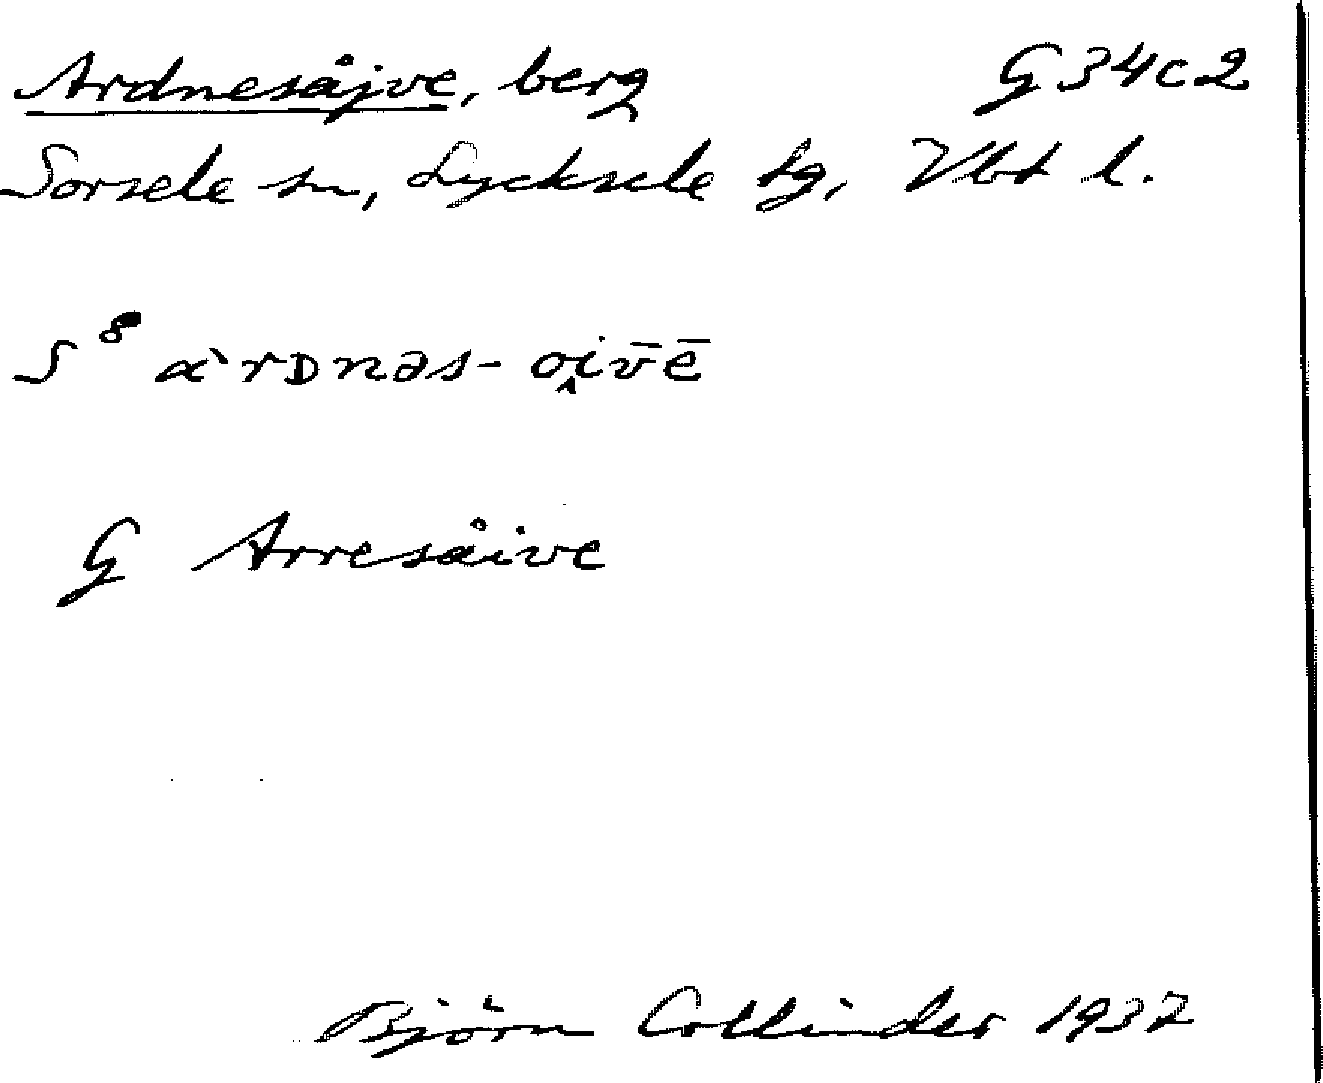 Ardnesåjve, berg G34c2
Sorsele sn, Lycksele lg, Vbt l.
S⁸ ɑ̀rᴅnəs-oi̭v̄ē
G Arresåive
Björn Collinder 1937